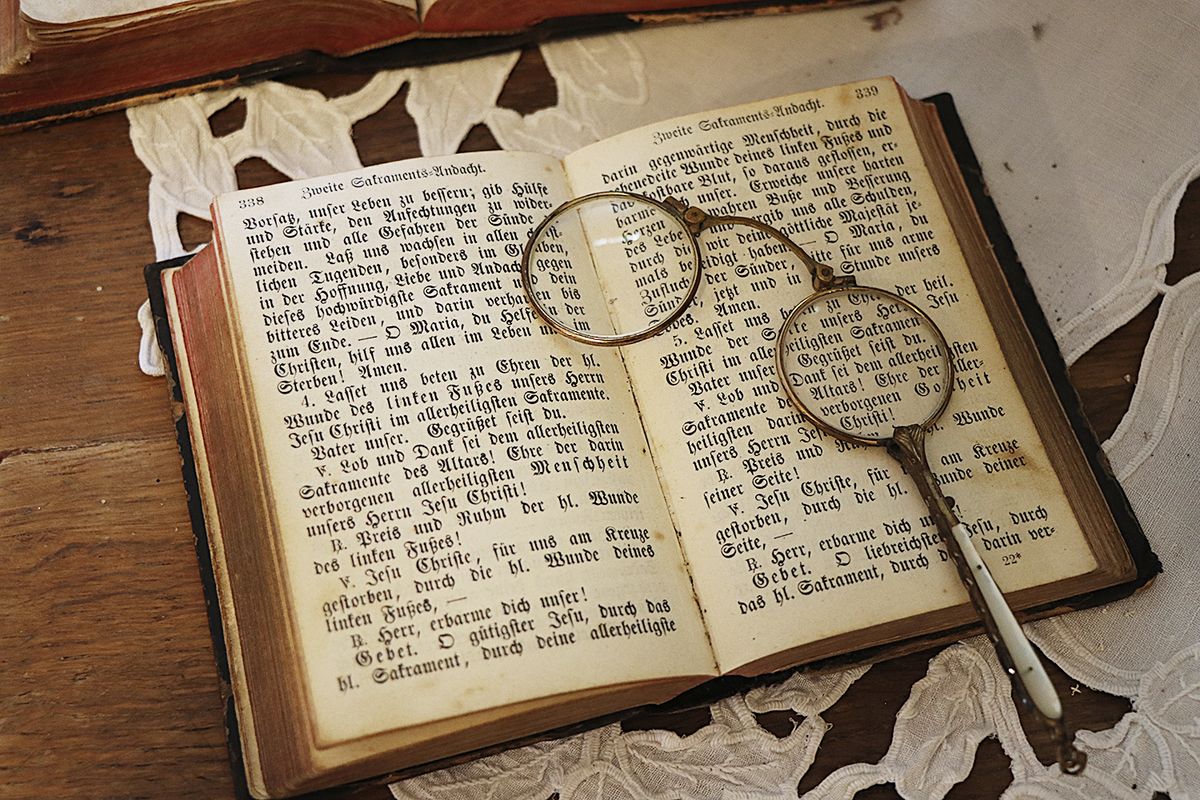 338 Zweite Sakraments-Andacht.
Vorsatz, unser Leben zu bessern; gib Hülfe
und Stärke, den Anfechtungen zu wider-
stehen und alle Gefahren der Sünde
meiden. Laß uns wachsen in allen
lichen Tugenden, besonders im
in der Hoffnung, Liebe und Andacht gegen
dieses hochwürdigste Sakrament dein
bitteres Leiden, und darin bis
zum Ende. — O Maria, du
Christen, hilf uns allen im Leben
Sterben! Amen.
4. Lasset uns beten zu Ehren der hl.
Wunde des linken Fußes unsers Herrn
Jesu Christi im allerheiligsten Sakramente.
Vater unser. Gegrüßet seist du.
V. Lob und Dank sei dem allerheiligsten
Sakramente des Altars! Ehre der darin
verborgenen allerheiligsten Menschheit
unsers Herrn Jesu Christi!
R. Preis und Ruhm der hl. Wunde
des linken Fußes!
V. Jesu Christe, für uns am Kreuze
gestorben, durch die hl. Wunde deines
linken Fußes, —
R. Herr, erbarme dich unser!
Gebet. O gütigster Jesu, durch das
hl. Sakrament, durch deine allerheiligste
Zweite Sakraments-Andacht. 339
darin gegenwärtige Menschheit, durch die
gebenedeite Wunde deines linken Fußes und
das kostbare Blut, so daraus geflossen, er-
barme unser. Erweiche unsere harten
Herzen wahren Buße und Besserung
des Lebe vergib uns alle Schulden,
durch die wir deine göttliche Majestät je-
mals beleidigt haben. — O Maria, du
Zuflucht der Sünder, bitte für uns arme
jetzt und in Stunde unsers
Amen.
5. Lasset uns der heil.
Wunde der unsers Jesu
Christi im heiligsten Sakramen
Vater unser Gegrüßet seist du.
V. Lob Dank sei dem allerheiligsten
Sakramente Altars! Ehre der aller-
heiligsten darin verborgenen
unsers Herrn Christi!
R. Preis und Wunde
seiner Seite!
V. Jesu Christe, für am Kreuze
gestorben, durch die hl. Wunde deiner
Seite, —
R. Herr, erbarme dich
Gebet. O liebreichster Jesu, durch
das hl. Sakrament, durch darin ver-
22*